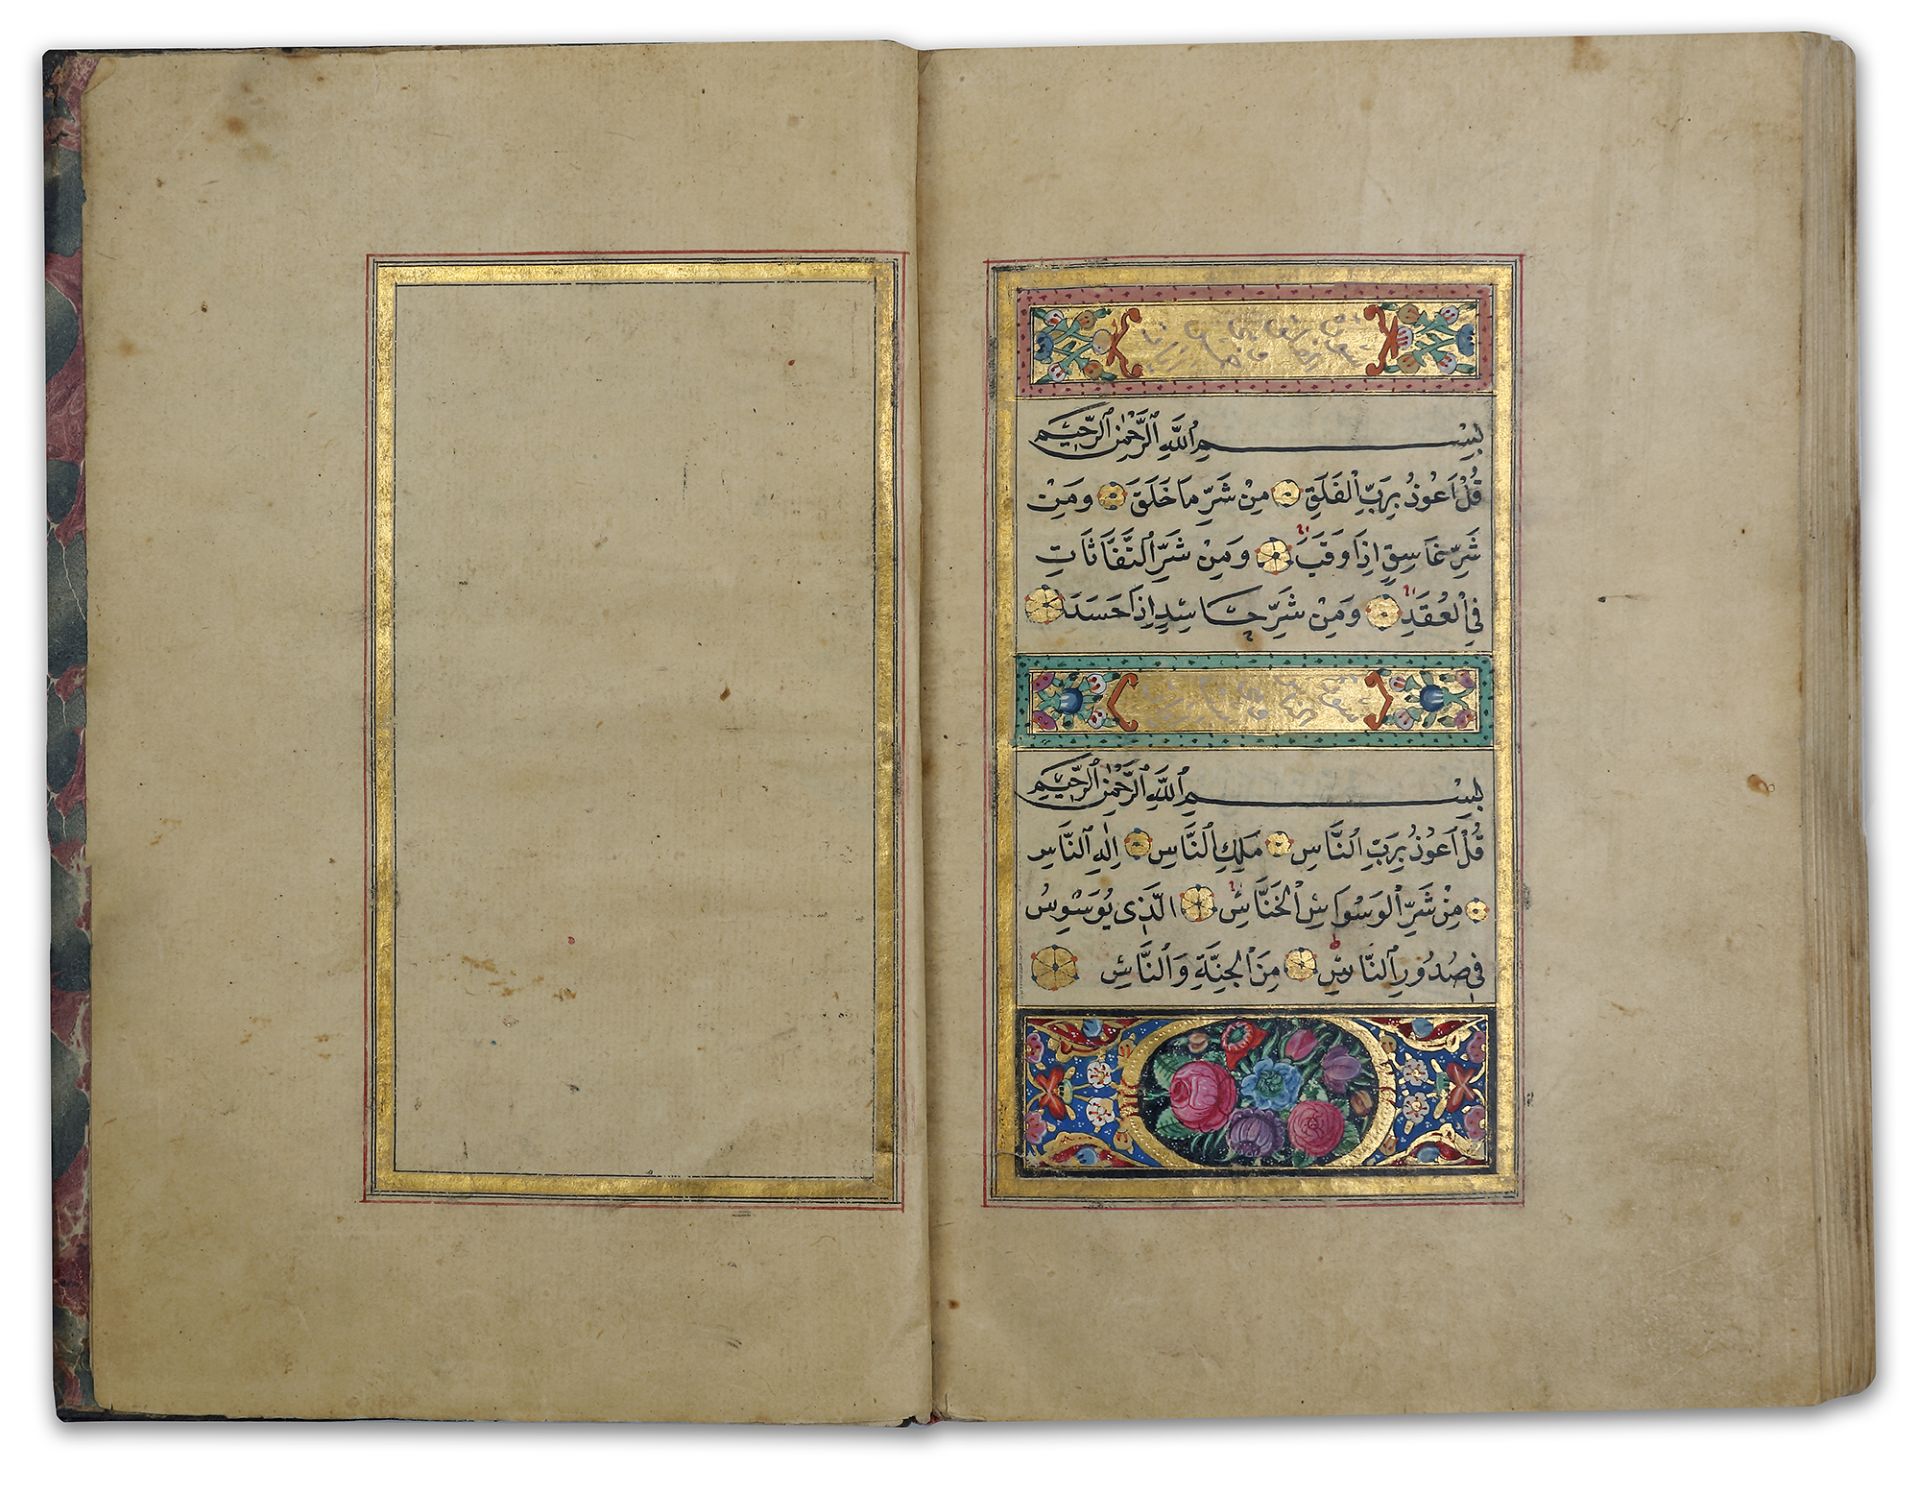 سورة الفلق وهي خمس آيات
بِسْمِ اللّٰهِ الرَّحْمٰنِ الرَّحِيمِ
قُلْ اَعُوذُ بِرَبِّ الْفَلَقِ مِنْ شَرِّ مَا خَلَقَ وَمِنْ
شَرِّ غَاسِقٍ اِذَا وَقَبَ وَمِنْ شَرِّ النَّفَّاثَاتِ
فِي الْعُقَدِ وَمِنْ شَرِّ حَاسِدٍ اِذَا حَسَدَ
سورة الناس
بِسْمِ اللّٰهِ الرَّحْمٰنِ الرَّحِيمِ
قُلْ اَعُوذُ بِرَبِّ النَّاسِ مَلِكِ النَّاسِ اِلٰهِ النَّاسِ
مِنْ شَرِّ الْوَسْوَاسِ الْخَنَّاسِ الَّذِي يُوَسْوِسُ
فِي صُدُورِ النَّاسِ مِنَ الْجِنَّةِ وَالنَّاسِ